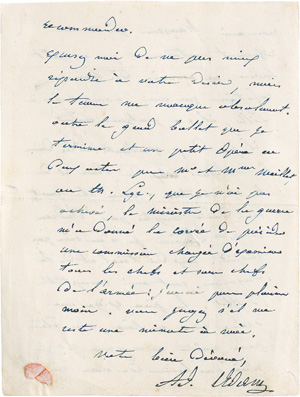 recommander.
Excusez moi de ne pas mieux
répondre à votre désir, mais
le temps me manque absolument.
outre le grand ballet que je
termine et un petit opéra en
un acte pour Mr et Mme Meillet
au th. Lyr., que je n'ai pas
achevé, le ministre de la guerre
m'a donné la corvée de présider
une commission chargée d'examiner
tous les chefs et sous chefs
de l'armée; j'en ai pour plusieurs
mois. vous jugez s'il me
reste une minute à moi.
votre bien dévoué,
Ad. Adam